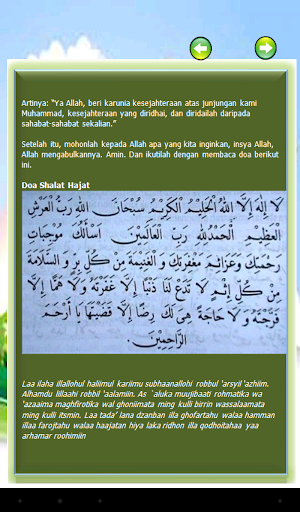 Artinya: "Ya Allah, beri karunia kesejahteraan atas junjungan kami
Muhammad, kesejahteraan yang diridhai, dan diridailah daripada
sahabat-sahabat sekalian."
Setelah itu, mohonlah kepada Allah apa yang kita inginkan, insya Allah,
Allah mengabulkannya. Amin. Dan ikutilah dengan membaca doa berikut
ini.
Doa Shalat Hajat
لَا إِلٰهَ إِلَّا اللهُ الْحَلِيْمُ الْكَرِيْمُ سُبْحَانَ اللهِ رَبِّ الْعَرْشِ
الْعَظِيْمِ الْحَمْدُ لِلّٰهِ رَبِّ الْعَالَمِيْنَ أَسْأَلُكَ مُوْجِبَاتِ
رَحْمَتِكَ وَعَزَائِمَ مَغْفِرَتِكَ وَالْغَنِيْمَةَ مِنْ كُلِّ بِرٍّ وَالسَّلَامَةَ
مِنْ كُلِّ إِثْمٍ لَا تَدَعْ لَنَا ذَنْبًا إِلَّا غَفَرْتَهُ وَلَا هَمًّا إِلَّا
فَرَّجْتَهُ وَلَا حَاجَةً هِيَ لَكَ رِضًا إِلَّا قَضَيْتَهَا يَا أَرْحَمَ
الرَّاحِمِيْنَ.
Laa ilaha illallohul haliimul kariimu subhaanallohi robbul 'arsyil 'azhiim.
Alhamdu lillaahi robbil 'aalamiin. As `aluka muujibaati rohmatika wa
'azaaima maghfirotika wal ghoniimata ming kulli birrin wassalaamata
ming kulli itsmin. Laa tada' lana dzanban illa ghofartahu walaa hamman
illaa farojtahu walaa haajatan hiya laka ridhon illa qodhoitahaa yaa
arhamar roohimiin